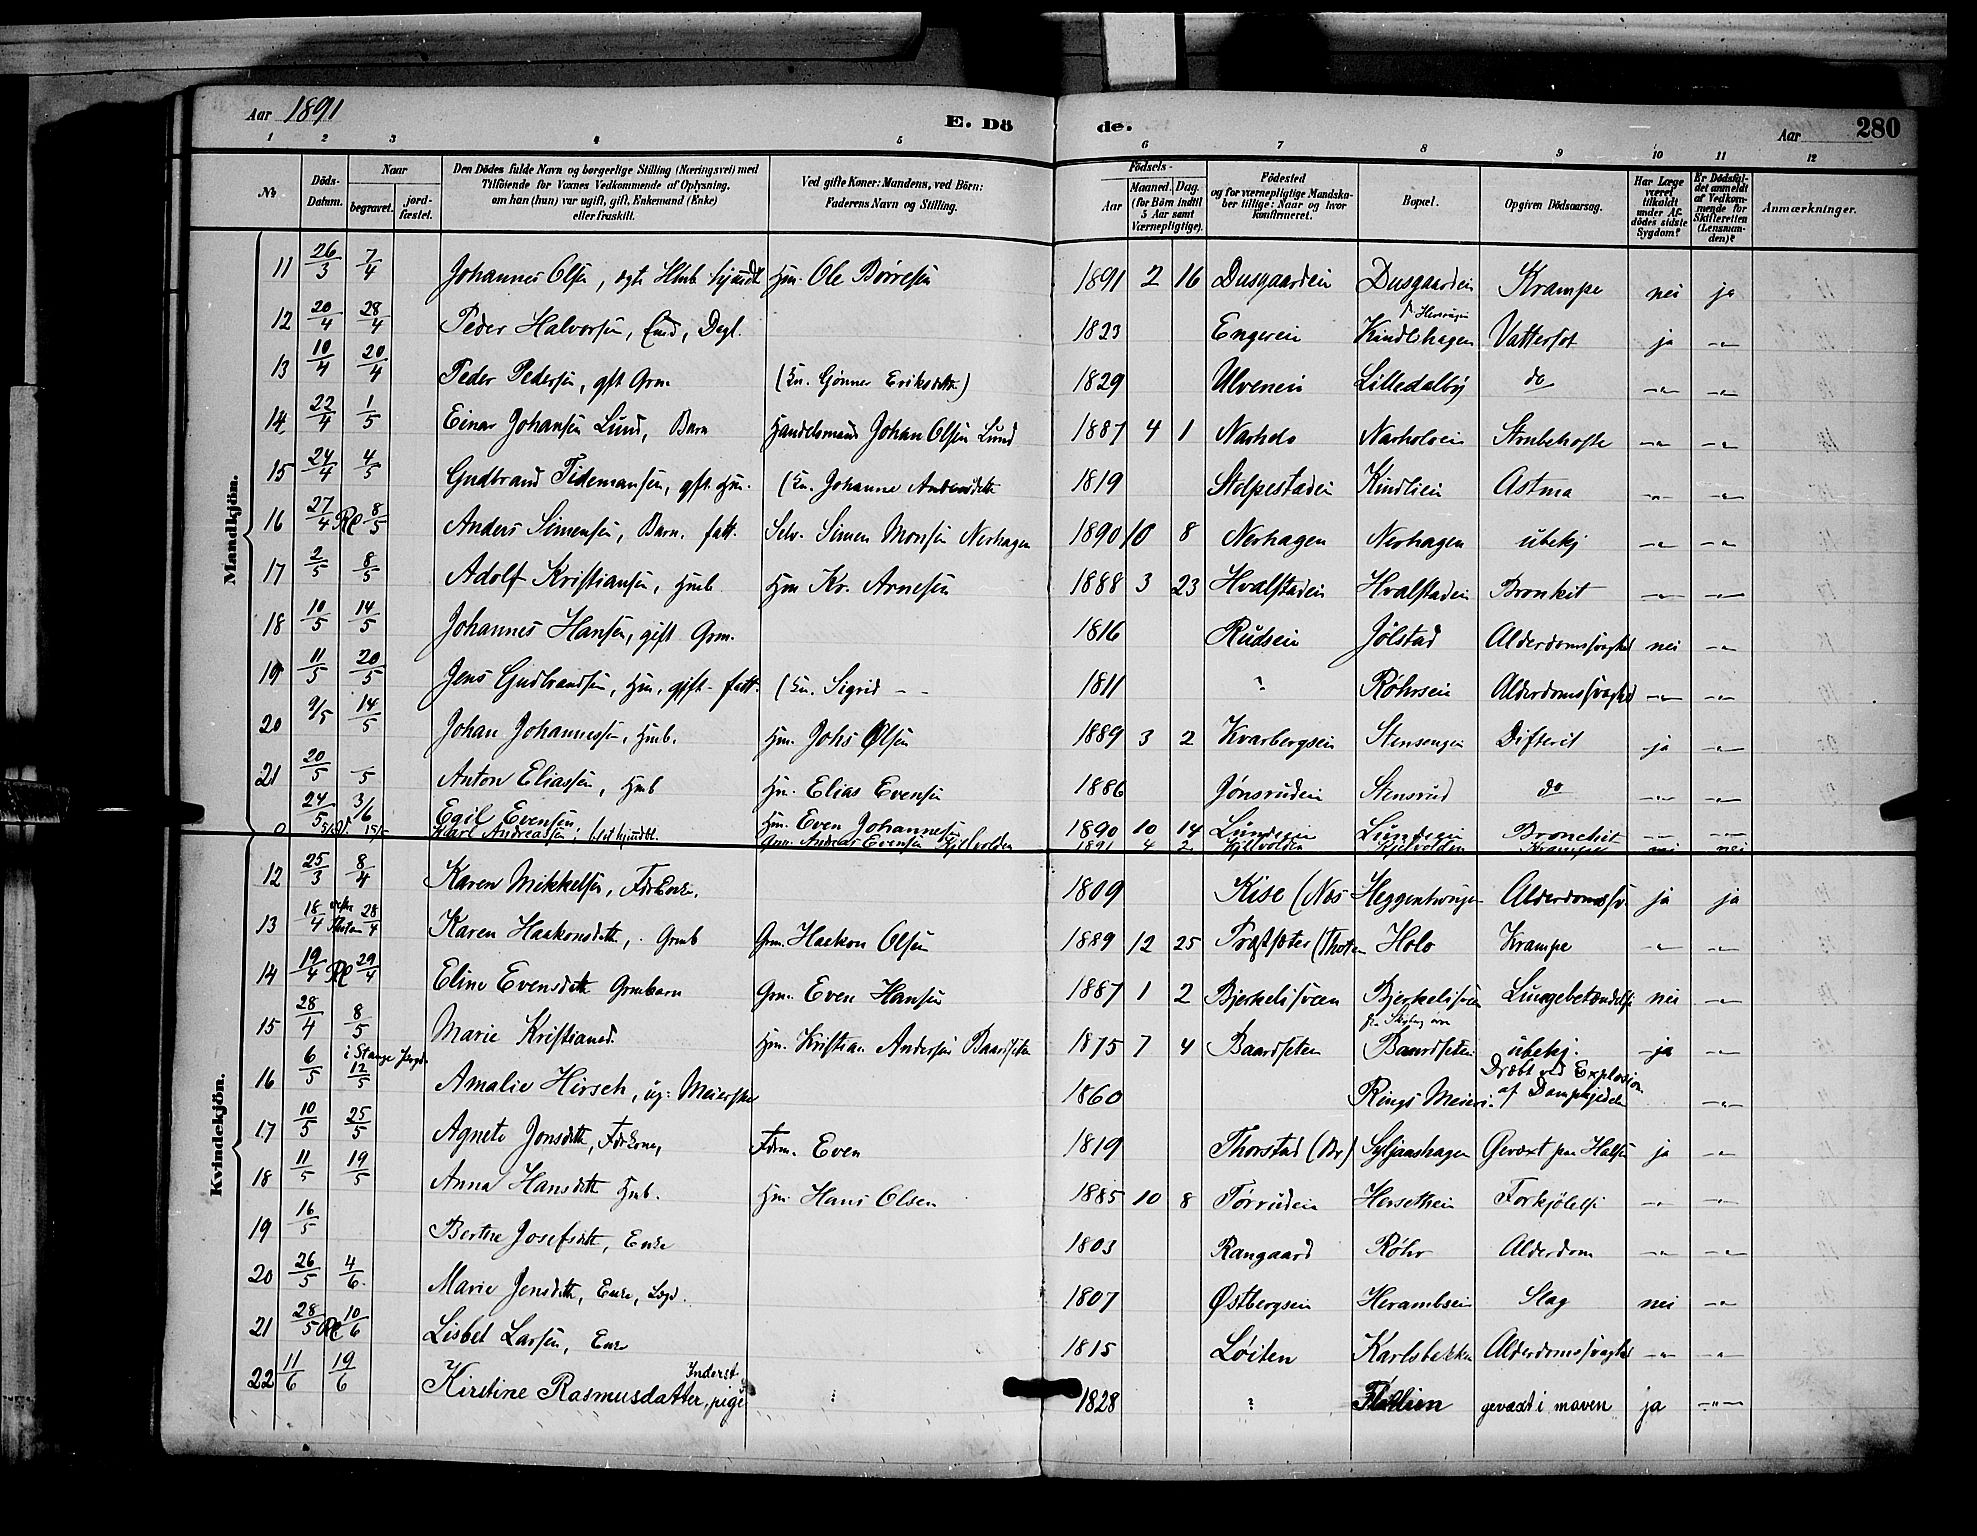 Aar 1891
E. Dö
de.
Aar
280
1 2 3 4 5 6 7 8 9 10 11 12
№
Döds-Datum.
Naar
begravet.
jord-fæstet.
Den Dödes fulde Navn og borgerlige Stilling (Næringsvei) med
Tilföiende for Voxnes Vedkommende af Oplysning,
om han (hun) var ugift, gift, Enkemand (Enke)
eller fraskilt.
Ved gifte Koner: Mandens, ved Börn:
Faderens Navn og Stilling.
Födsels-
Aar
Maaned. Dag.
(for Börn indtil
5 Aar samt
Værnepligtige).
Födested
og for værnepligtige Mandska-
ber tillige: Naar og hvor
konfirmeret.
Bopæl.
Opgiven Dödsaarsag.
Har Læge
været
tilkaldt
under Af-
dödes sidste
Sygdom?
Er Dödsfal-
det anmeldt
af Vedkom-
mende for
Skifteretten
(Lensman-
den)?
Anmærkninger.
Mandkjön.
11 26/3 7/4 Johannes Olsen, ægte Hmb hjemdt Hm. Ole Börresen 1891 2 16 Dusgaardein Dusgaardein Krampe nei ja
12 20/4 28/4 Peder Halvorsen, Emd, Degl. 1823 Engerein Kindlshagen Vattersot ja -"-
13 10/4 20/4 Peder Pedersen, gft Grm (Kn. Gønner Eriksdttr.) 1829 Ulvenein Lilledalby do -"- -"-
14 22/4 1/5 Einar Johansen Lund, Barn Handelsmand Johan Olsen Lund 1887 4 1 Narholo Narholoein Strubehoste -"- -"-
15 24/4 4/5 Gudbrand Tidemansen, gft. Hm. (Kn. Johanne Andersdtth 1819 Stolpestadein Kindliein Astma -"- -"-
16 27/4 8/5 Anders Simensen, Barn. fatt. Selv. Simen Monsen Nerhagen 1890 10 8 Nerhagen Nerhagen übekj -"- -"-
17 2/5 8/5 Adolf Kristiansen, Hmb. Hm Kr. Arnesen 1888 3 23 Hvalstadein Hvalstadein Bronkit -"- -"-
18 10/5 14/5 Johannes Hansen, gift Grm. 1816 Rudsein Jölstad Alderdomssvaghed nei -"-
19 11/5 20/5 Jens Gudbrandsen, Hm, gift - fatt. (Kn. Sigrid - - 1811 ? Røhrsein Alderdomssvaghed -"- -"-
20 9/5 14/5 Johan Johannessen, Hmb. Hm. Johs Olsen 1889 3 2 Kvarbergsein Stensengen Difterit ja -"-
21 20/5 /5 Anton Eliassen, Hmb Hm. Elias Evensen 1886 Jønsrudein Stensrud do -"- -"-
24/5 3/6 Egil Evensen Hm. Even Johannesen 1890 10 14 Lundein Lundein Bronchit -"- -"-
Karl Andreassen; hjemdt. Grm. Andreas Evensen Kjelvolden 1891 4 2 Kjelvolden Kjelvolden Krampe nei nei
Kvindekjön.
12 25/3 8/4 Karen Mikkelsen, FdrEnke. 1809 Kise (Nes Heggenhaugen Alderdomssv. ja ja
13 18/4 28/4 Karen Haakonsdtth, Grmb Grm. Haakon Olsen 1889 12 25 (Thoten Holo Krampe -"- -"-
14 19/4 29/4 Eline Evensdtth Grmbarn Grm. Even Hansen 1887 1 2 Bjerkelisveen Bjerkelisveen Lungebetændelse nei -"-
15 28/4 8/5 Marie Kristiansd. Hm. Kristian Andersen Baardseten 1875 7 4 Baardseten Baardseten übekj. ja -"-
16 6/5 i Stange 12/5 Amalie Hirsch, ug: Meierske 1860 Rings Meieri. Dræbt ved Explosion af Dampkjedelen -"-
17 10/5 25/5 Agnete Jonsdtth, Fdrkone, Fdrm. Even 1819 Thorstad (Br) Syljuashagen Gevæxt paa Halsen ja -"-
18 11/5 19/5 Anna Hansdtth Hmb. Hm Hans Olsen 1885 10 8 Tørrudein Hersethein Forkjölelse -"- -"-
19 16/5 Berthe Josefsdtth, Enke 1803 Rangaard Røhr Alderdom -"- -"-
20 26/5 4/6. Marie Jensdtth, Enke, Lægd. 1807 Østbergsein Herambsein Slag nei -"-
21 28/5 10/6 Lisbet Larsen, Enke 1815 Løiten Karlsbakken Alderdomssvaghed -"- -"-
22 11/6 19/6 Kirstine Rasmusdatter, Inderst pige 1828 ? gevæxt i maven ja -"-